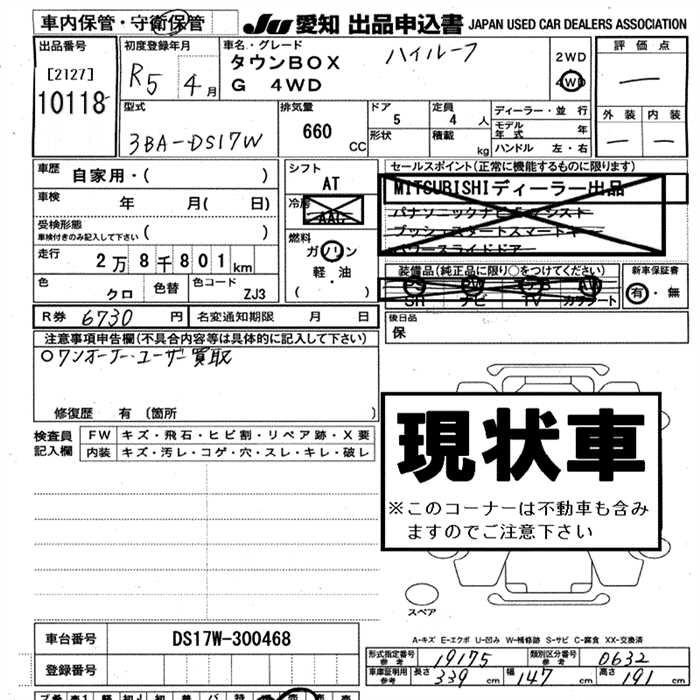 車内保管・守衛保管
JU 愛知 出品申込書 JAPAN USED CAR DEALERS ASSOCIATION
出品番号
[2127]
10118
初度登録年月
R5 4月
車名・グレード
タウンBOX
G 4WD
ハイルーフ
2WD
4WD
評価点
—
外装 内装
— —
型式
3BA-DS17W
排気量
660
CC
ドア
5
形状
定員
4 人
積載
kg
ディーラー・並行
モデル年式 年
ハンドル 左・右
車歴
自家用・( )
車検 年 月( 日)
受検形態
車検付きのみ記入して下さい ( )
走行 2万8千801km
色 クロ
色替
色コード ZJ3
シフト
AT
冷房
AAC
燃料
ガソリン
軽・油
( )
セールスポイント(正常に機能するものに限ります)
MITSUBISHIディーラー出品
パナソニックナビ
プッシュスタートスマートキー
パワースライドドア
装備品(純正品に限り○をつけてください)
SR ナビ TV カワシート
新車保証書
有・無
R券 6730円
名変通知期限 月 日
後日品
保
注意事項申告欄(不具合内容等は具体的に記入して下さい)
○ワンオーナーユーザー買取
修復歴 有 (箇所 )
検査員
記入欄
FW キズ・飛石・ヒビ割・リペア跡・X要
内装 キズ・汚レ・コゲ・穴・スレ・キレ・破レ
現状車
※このコーナーは不動車も含み
ますのでご注意下さい
スペア
A-キズ E-エクボ U-凹み W-補修跡 S-サビ C-腐食 XX-交換済
車台番号 DS17W-300468
登録番号
形式指定番号 参考 19175
類別区分番号 参考 0632
車庫証明用 参考 長さ 339cm 幅 147cm 高さ 191cm